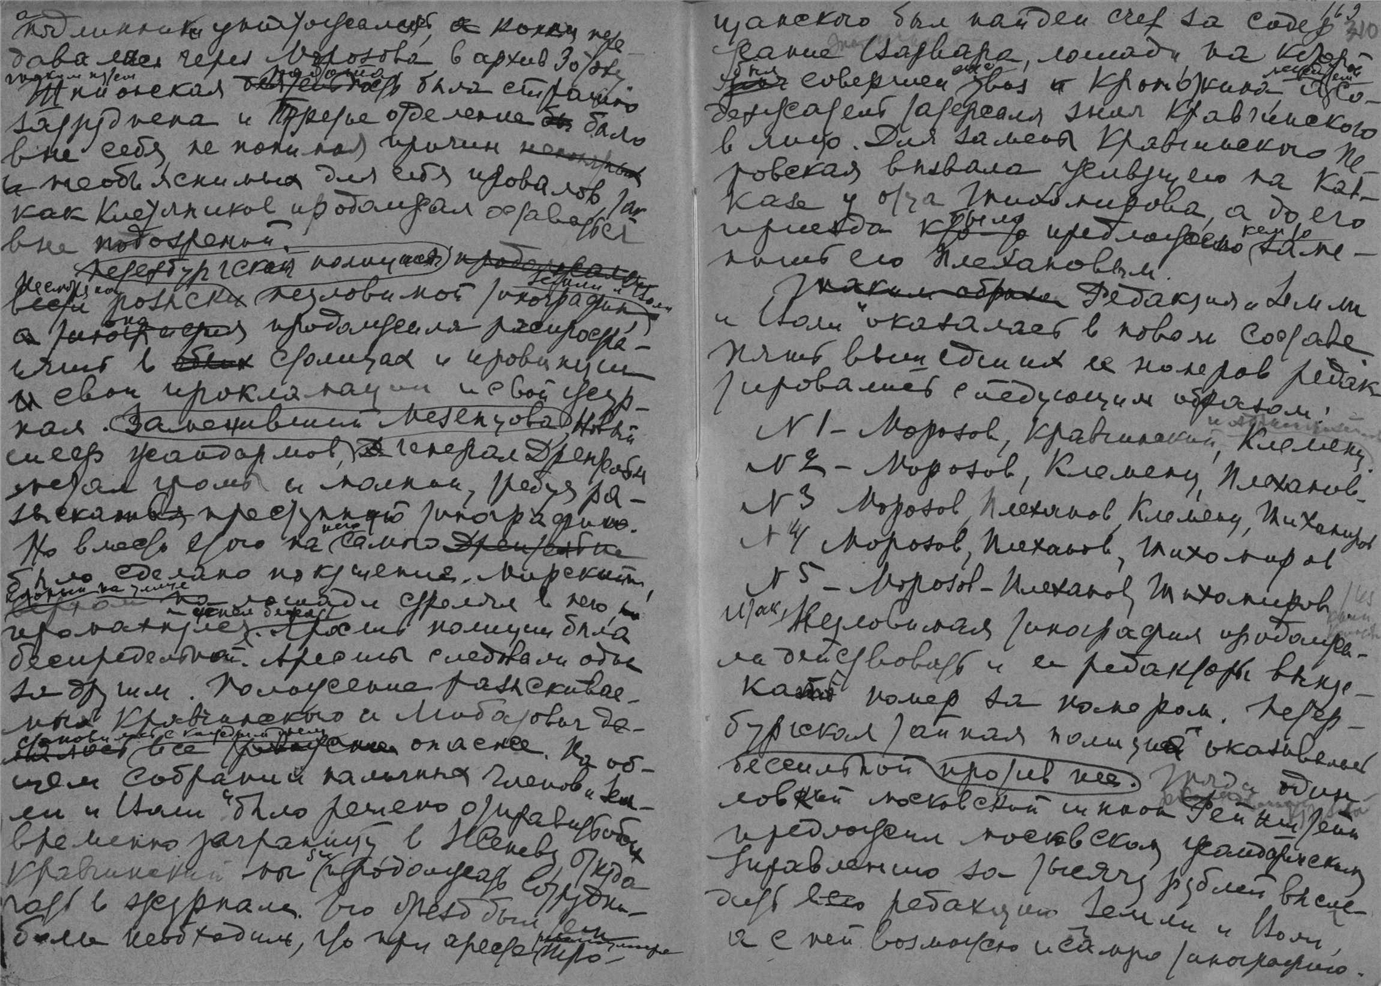 подлинники уничтожались, а копии пере-
давались через Морозова в архив Зотову
таким путем работа
Шпионская была страшно
затруднена и Третье отделение было
вне себя, не понимая причин
и необъяснимых для себя провалов, так
как Клеточников продолжал оставаться
вне подозрений.
Петербургской полицией
Несмотря на Земли и Воли
розыски неуловимой типографии,
она продолжала распростра-
нять в столицах и провинции
и свои прокламации и свой жур-
нал. Заменивший Мезенцова, новый
шеф жандармов, генерал Дрентельн
метал громы и молнии, требуя ра-
зыскать преступную типографию.
Но вместо этого на него самого
было сделано покушение. Мирский,
на лошади стрелял в него, но
промахнулся. Ярость полиции была
беспредельной. Аресты следовали один
за другим. Положение разыскивае-
мых Кравчинского и Любатович де-
становилось с каждым днем
лалось все опаснее. На об-
щем собрании наличных членов „Зем-
ли и Воли" было решено отправить обоих
временно заграницу в Женеву, откуда
Кравчинский мог бы продолжать сотрудни-
чать в журнале. Его отъезд был
более необходим, что при аресте
169
310
щанского был найден счет за содер-
жание Варвара, лошади, на которой
был совершен увоз и Кропоткина и со-
держатель татерсаля знал Кравчинского
в лицо. Для замены Кравчинского Пе-
ровская вызвала жившего на Кав-
казе у отца Тихомирова, а до его
приезда было предложено заме-
нить его Плехановым.
Таким образом Редакция „Земли
и Воли" оказалась в новом составе
Пять вышедших ее номеров редак-
тировались следующим образом:
№ 1 – Морозов, Кравчинский, Клеменц.
№ 2 – Морозов, Клеменц, Плеханов.
№ 3 Морозов, Плеханов, Клеменц, Тихомиров
№ 4 Морозов, Плеханов, Тихомиров
№ 5 – Морозов – Плеханов, Тихомиров
Итак, Неуловимая типография продолжа-
ла действовать и ее редакторы выпус-
кали номер за номером. Петер-
бургская тайная полиция оказывалась
бессильной против нее. Тогда один
ловкий московский шпион Рейнштейн
предложил московскому жандармскому
Управлению за тысячу рублей высле-
дить всю редакцию Земли и Воли,
а с ней возможно и самую типографию.